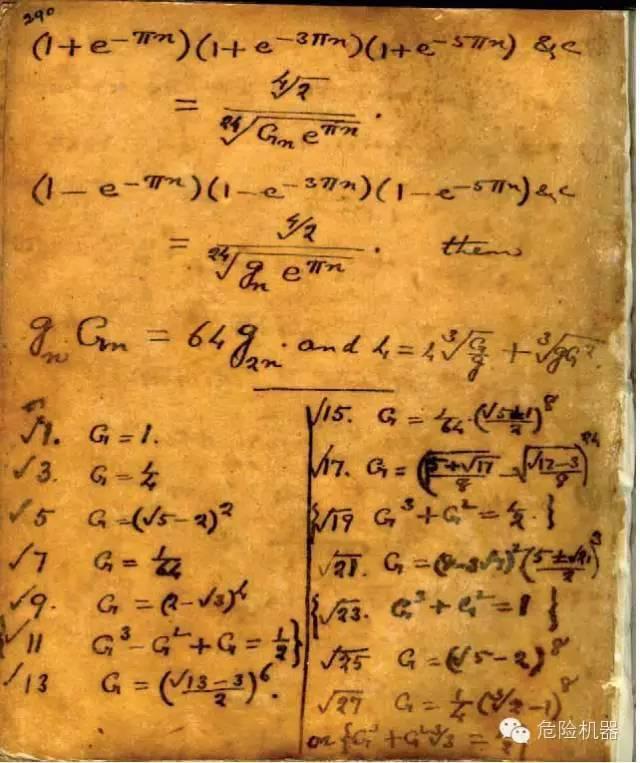 290
(1+e^{-πn})(1+e^{-3πn})(1+e^{-5πn}) &c
= ∜2 / ²⁴√(G_n e^{πn}) .
(1-e^{-πn})(1-e^{-3πn})(1-e^{-5πn}) &c
= ∜2 / ²⁴√(g_n e^{πn}) . then
g_n G_n = 64 g_{2n} . and 1 = 4 ∛(G/g) + ∛(gG²).
√1. G = 1.
√3. G = 1/4
√5 G = (√5-2)²
√7 G = 1/64
√9. G = (2-√3)⁴
{√11 G³-G²+G = 1/2}
√13 G = ((√13-3)/2)⁶.
√15. G = 1/64 ((√5±1)/2)⁸
√17. G = ((5+√17)/8 - √((√17-3)/8))²⁴
{√19 G³+G² = 1/2. }
√21. G = (8-3√7)² ((5±√21)/2)³
{√23. G³+G² = 1 }
√25 G = (√5-2)⁸
√27 G = 1/4 (∛2-1)⁸
or {G³+G²∛3 =
危险机器